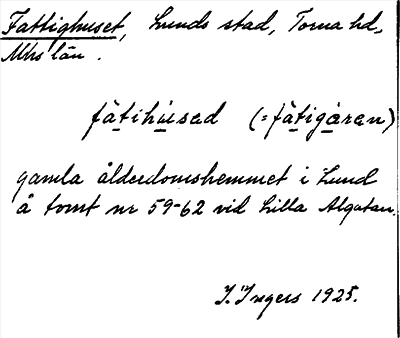 Fattighuset, Lunds stad, Torna hd,
Mhs län.
fàtihùsad (=fàtigåran)
gamla ålderdomshemmet i Lund
å tomt nr 59-62 vid Lilla Algatan.
I. Ingers 1925.